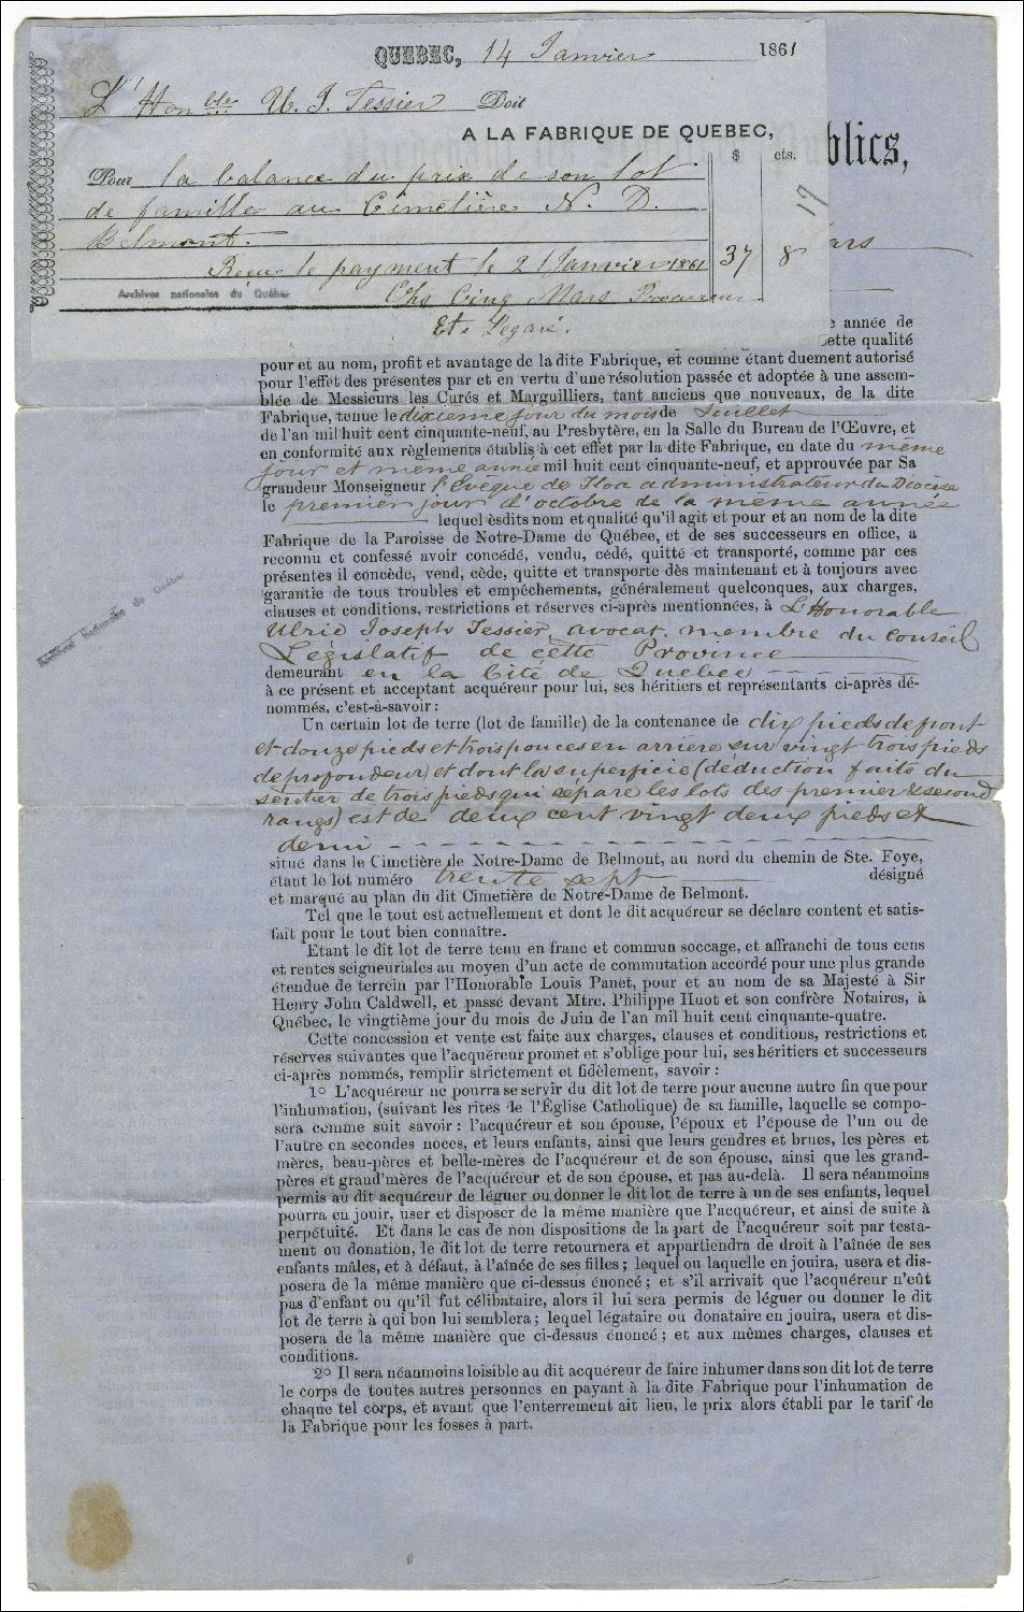 QUEBEC, 14 Janvier 1861
L'Honble U. J. Tessier Doit
A LA FABRIQUE DE QUEBEC,
$ cts.
Pour la balance du prix de son lot
de famille au Cimetière N. D.
Belmont.
Reçu le payment le 21 Janvier 1861 37 8
17
Archives nationales du Québec
Chs Cinq Mars Procureur
Et. Legaré.
blics,
ars
année de
cette qualité
pour et au nom, profit et avantage de la dite Fabrique, et comme étant duement autorisé
pour l'effet des présentes par et en vertu d'une résolution passée et adoptée à une assem-
blée de Messieurs les Curés et Marguilliers, tant anciens que nouveaux, de la dite
Fabrique, tenue le dixieme jour du mois de Juillet
de l'an mil huit cent cinquante-neuf, au Presbytère, en la Salle du Bureau de l'Œuvre, et
en conformité aux règlements établis à cet effet par la dite Fabrique, en date du même
jour et même année mil huit cent cinquante-neuf, et approuvée par Sa
grandeur Monseigneur l'Evêque de Tloa administrateur du Diocèse
le premier jour d'octobre de la même année
lequel èsdits nom et qualité qu'il agit et pour et au nom de la dite
Fabrique de la Paroisse de Notre-Dame de Québec, et de ses successeurs en office, a
reconnu et confessé avoir concédé, vendu, cédé, quitté et transporté, comme par ces
présentes il concède, vend, cède, quitte et transporte dès maintenant et à toujours avec
garantie de tous troubles et empêchements, généralement quelconques, aux charges,
clauses et conditions, restrictions et réserves ci-après mentionnées, à L'Honorable
Ulric Joseph Tessier, avocat, membre du Conseil
Législatif de cette Province
demeurant en la Cité de Quebec
à ce présent et acceptant acquéreur pour lui, ses héritiers et représentants ci-après dé-
nommés, c'est-à-savoir :
Un certain lot de terre (lot de famille) de la contenance de dix pieds de front
et douze pieds et trois pouces en arriere sur vingt trois pieds
de profondeur, et dont la superficie (déduction faite du
sentier de trois pieds qui sépare les lots des premier & second
rangs) est de deux cent vingt deux pieds et
demi
situé dans le Cimetière de Notre-Dame de Belmont, au nord du chemin de Ste. Foye,
étant le lot numéro trente sept désigné
et marqué au plan du dit Cimetière de Notre-Dame de Belmont.
Tel que le tout est actuellement et dont le dit acquéreur se déclare content et satis-
fait pour le tout bien connaître.
Etant le dit lot de terre tenu en franc et commun soccage, et affranchi de tous cens
et rentes seigneuriales au moyen d'un acte de commutation accordé pour une plus grande
étendue de terrein par l'Honorable Louis Panet, pour et au nom de sa Majesté à Sir
Henry John Caldwell, et passé devant Mtre. Philippe Huot et son confrère Notaires, à
Québec, le vingtième jour du mois de Juin de l'an mil huit cent cinquante-quatre.
Cette concession et vente est faite aux charges, clauses et conditions, restrictions et
réserves suivantes que l'acquéreur promet et s'oblige pour lui, ses héritiers et successeurs
ci-après nommés, remplir strictement et fidèlement, savoir :
1º L'acquéreur ne pourra se servir du dit lot de terre pour aucune autre fin que pour
l'inhumation, (suivant les rites de l'Église Catholique) de sa famille, laquelle se compo-
sera comme suit savoir : l'acquéreur et son épouse, l'époux et l'épouse de l'un ou de
l'autre en secondes noces, et leurs enfants, ainsi que leurs gendres et brues, les pères et
mères, beau-pères et belle-mères de l'acquéreur et de son épouse, ainsi que les grand-
pères et grand'mères de l'acquéreur et de son épouse, et pas au-delà. Il sera néanmoins
permis au dit acquéreur de léguer ou donner le dit lot de terre à un de ses enfants, lequel
pourra en jouir, user et disposer de la même manière que l'acquéreur, et ainsi de suite à
perpétuité. Et dans le cas de non dispositions de la part de l'acquéreur soit par testa-
ment ou donation, le dit lot de terre retournera et appartiendra de droit à l'aînée de ses
enfants mâles, et à défaut, à l'aînée de ses filles ; lequel ou laquelle en jouira, usera et dis-
posera de la même manière que ci-dessus énoncé ; et s'il arrivait que l'acquéreur n'eût
pas d'enfant ou qu'il fut célibataire, alors il lui sera permis de léguer ou donner le dit
lot de terre à qui bon lui semblera ; lequel légataire ou donataire en jouira, usera et dis-
posera de la même manière que ci-dessus énoncé ; et aux mêmes charges, clauses et
conditions.
2º Il sera néanmoins loisible au dit acquéreur de faire inhumer dans son dit lot de terre
le corps de toutes autres personnes en payant à la dite Fabrique pour l'inhumation de
chaque tel corps, et avant que l'enterrement ait lieu, le prix alors établi par le tarif de
la Fabrique pour les fosses à part.
Archives nationales du Québec